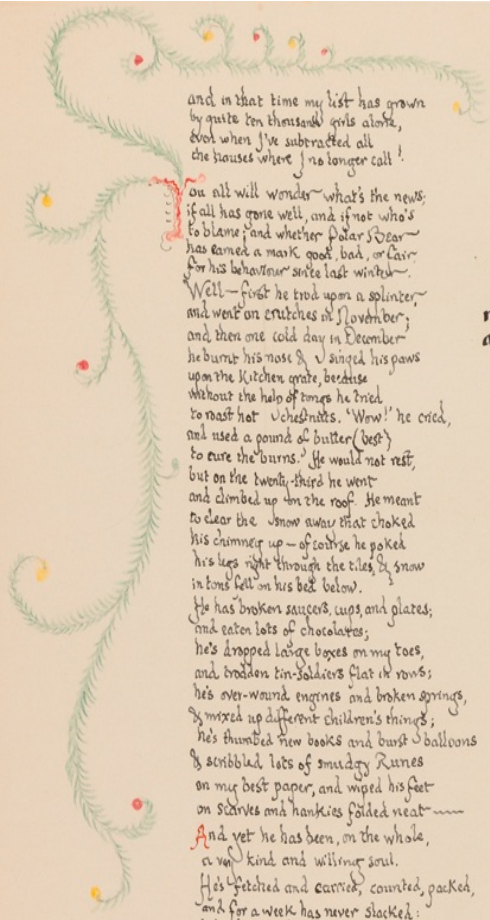 and in that time my list has grown
by quite ten thousand girls alone,
even when I've subtracted all
the houses where I no longer call!
You all will wonder what's the news;
if all has gone well, and if not who's
to blame; and whether Polar Bear
has earned a mark good, bad, or fair,
for his behaviour since last winter.
Well — first he trod upon a splinter
and went on crutches in November;
and then one cold day in December
he burnt his nose & singed his paws
upon the Kitchen grate, because
without the help of tongs he tried
to roast hot chestnuts. 'Wow!' he cried,
and used a pound of butter (best)
to cure the burns. He would not rest,
but on the twenty-third he went
and climbed up on the roof. He meant
to clear the snow away that choked
his chimney up — of course he poked
his legs right through the tiles, & snow
in tons fell on his bed below.
He has broken saucers, cups, and plates;
and eaten lots of chocolates;
he's dropped large boxes on my toes,
and trodden tin-soldiers flat in rows;
he's over-wound engines and broken springs,
& mixed up different children's things;
he's thumbed new books and burst balloons
& scribbled lots of smudgy Runes
on my best paper, and wiped his feet
on scarves and hankies folded neat —
And yet he has been, on the whole,
a very kind and willing soul.
He's fetched and carried, counted, packed,
and for a week has never slacked: